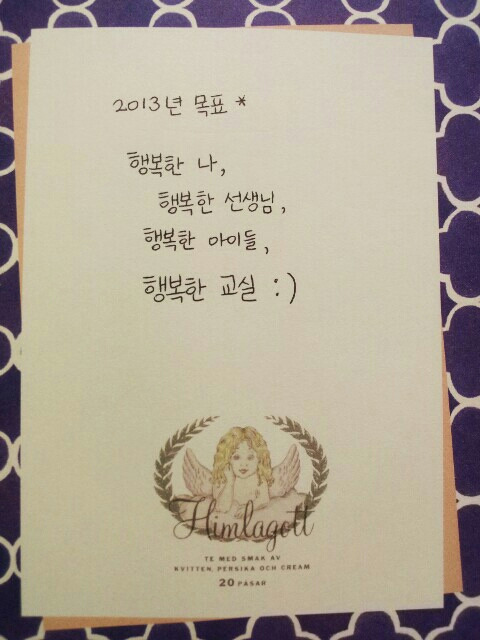 2013년 목표 *
행복한 나,
행복한 선생님,
행복한 아이들,
행복한 교실 :)
Himlagott
TE MED SMAK AV
KVITTEN, PERSIKA OCH CREAM
20 PÅSAR